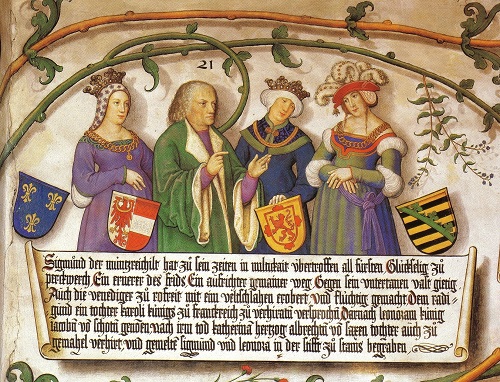 21
Sigmund der muntzreichist hat zů sein zeiten in miltikait übertroffen all fürsten Glückselig zů
perckwerch Ein ernerer des frids Ein aufrichter gemainer weg Gegen sein untertanen vast gietig
Auch die venediger zů rofreit mit ein veldschlahen erobert und flüchtig gemacht Dem radi
gund ein tochter karoli künigs zů franckreich zů verhiratn versprochn darnach leonoram künig
iacobn vo schotn nach irm tod katherina herzog albrechtn vo saxen tochter auch zů
gemahel verhirt und gemelte sigmund und leonora in der stifft zů stams begraben